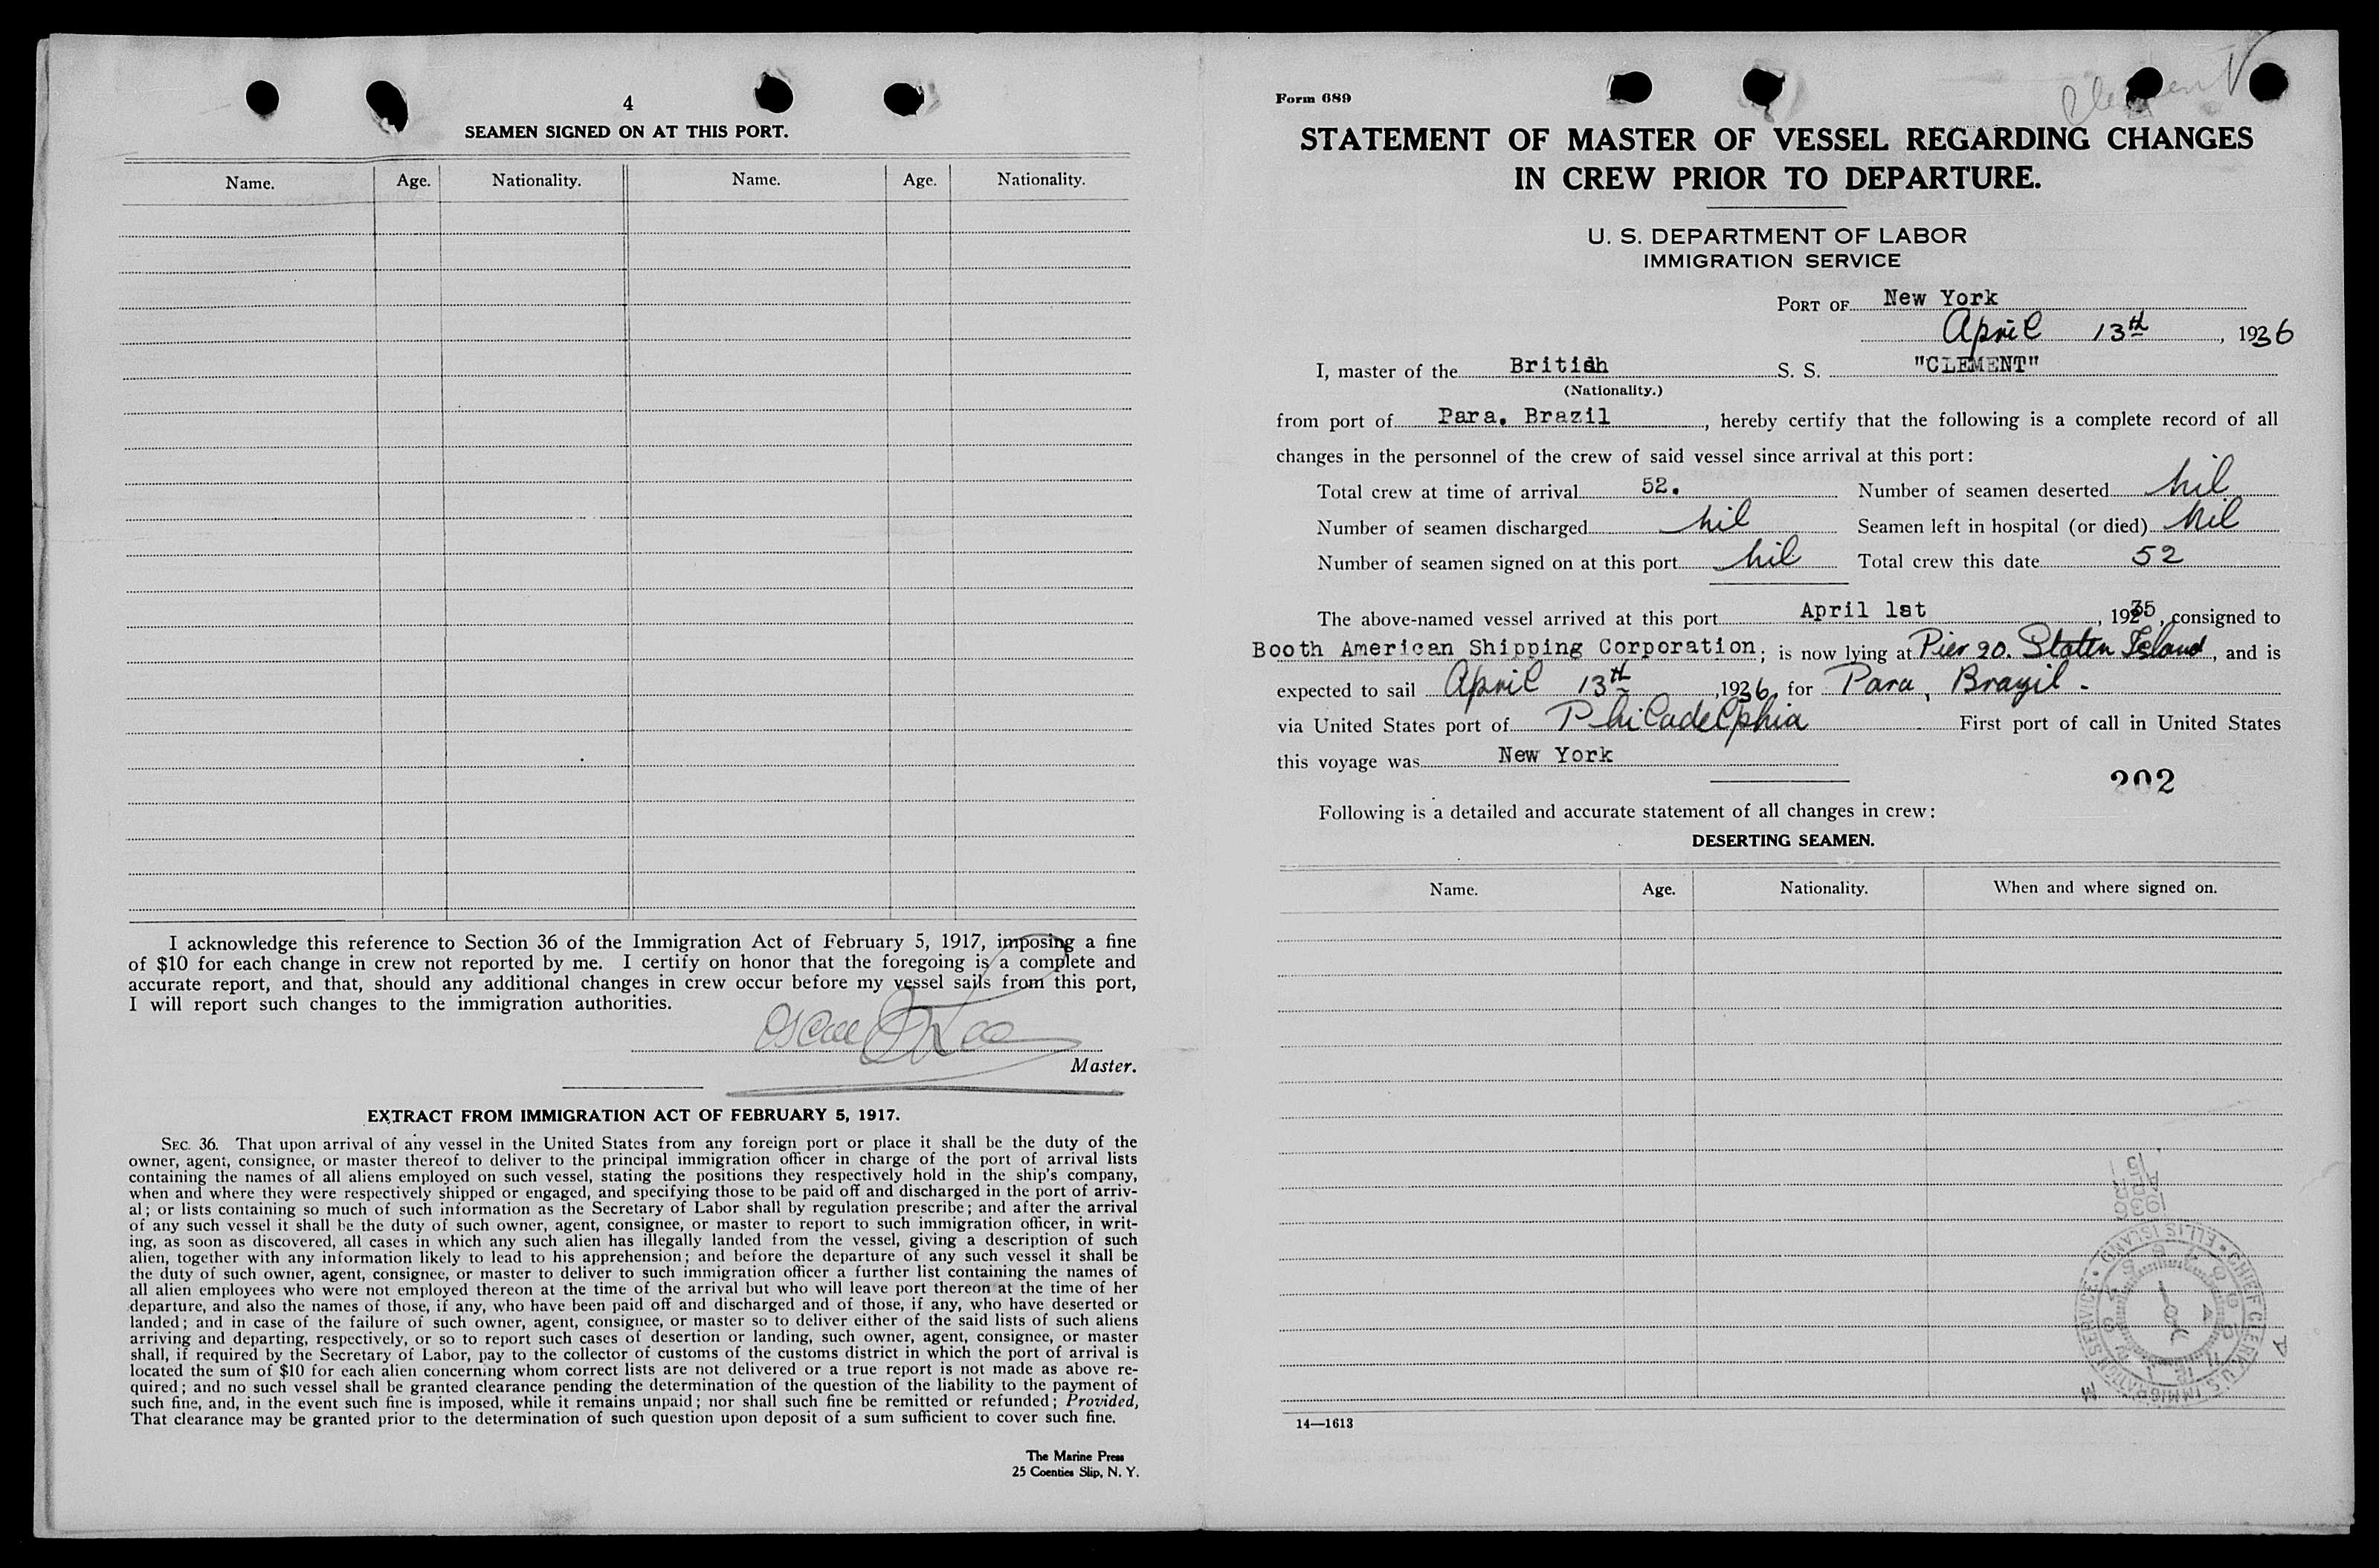 4
SEAMEN SIGNED ON AT THIS PORT.
Name. Age. Nationality. Name. Age. Nationality.
I acknowledge this reference to Section 36 of the Immigration Act of February 5, 1917, imposing a fine
of $10 for each change in crew not reported by me. I certify on honor that the foregoing is a complete and
accurate report, and that, should any additional changes in crew occur before my vessel sails from this port,
I will report such changes to the immigration authorities.
Master.
EXTRACT FROM IMMIGRATION ACT OF FEBRUARY 5, 1917.
SEC. 36. That upon arrival of any vessel in the United States from any foreign port or place it shall be the duty of the
owner, agent, consignee, or master thereof to deliver to the principal immigration officer in charge of the port of arrival lists
containing the names of all aliens employed on such vessel, stating the positions they respectively hold in the ship's company,
when and where they were respectively shipped or engaged, and specifying those to be paid off and discharged in the port of arriv-
al; or lists containing so much of such information as the Secretary of Labor shall by regulation prescribe; and after the arrival
of any such vessel it shall be the duty of such owner, agent, consignee, or master to report to such immigration officer, in writ-
ing, as soon as discovered, all cases in which any such alien has illegally landed from the vessel, giving a description of such
alien, together with any information likely to lead to his apprehension; and before the departure of any such vessel it shall be
the duty of such owner, agent, consignee, or master to deliver to such immigration officer a further list containing the names of
all alien employees who were not employed thereon at the time of the arrival but who will leave port thereon at the time of her
departure, and also the names of those, if any, who have been paid off and discharged and of those, if any, who have deserted or
landed; and in case of the failure of such owner, agent, consignee, or master so to deliver either of the said lists of such aliens
arriving and departing, respectively, or so to report such cases of desertion or landing, such owner, agent, consignee, or master
shall, if required by the Secretary of Labor, pay to the collector of customs of the customs district in which the port of arrival is
located the sum of $10 for each alien concerning whom correct lists are not delivered or a true report is not made as above re-
quired; and no such vessel shall be granted clearance pending the determination of the question of the liability to the payment of
such fine, and, in the event such fine is imposed, while it remains unpaid; nor shall such fine be remitted or refunded; Provided,
That clearance may be granted prior to the determination of such question upon deposit of a sum sufficient to cover such fine.
The Marine Press
25 Coenties Slip, N. Y.
Clement
Form 689
STATEMENT OF MASTER OF VESSEL REGARDING CHANGES
IN CREW PRIOR TO DEPARTURE.
U. S. DEPARTMENT OF LABOR
IMMIGRATION SERVICE
PORT OF New York
April 13th, 1936
I, master of the British S. S. "CLEMENT"
(Nationality.)
from port of Para. Brazil, hereby certify that the following is a complete record of all
changes in the personnel of the crew of said vessel since arrival at this port:
Total crew at time of arrival 52. Number of seamen deserted nil
Number of seamen discharged nil Seamen left in hospital (or died) nil
Number of seamen signed on at this port nil Total crew this date 52
The above-named vessel arrived at this port April 1st, 1935, consigned to
Booth American Shipping Corporation; is now lying at Pier 20. Staten Island, and is
expected to sail April 13th, 1936, for Para, Brazil.
via United States port of Philadelphia First port of call in United States
this voyage was New York
202
Following is a detailed and accurate statement of all changes in crew:
DESERTING SEAMEN.
Name. Age. Nationality. When and where signed on.
1936
APR
CHIEF CLERK, U.S. IMMIGRATION SERVICE • ELLIS ISLAND •
14—1613